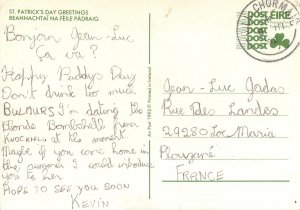 ST. PATRICK'S DAY GREETINGS
BEANNACHTAÍ NA FÉILE PÁDRAIG
Bonjour Jean-Luc
Ça va?
Happy Paddys Day
Don't drink to much
BULMURS I'm dating the
Blonde Bombshell from
KNOCKHILL at the moment.
Maybe if you come home in
the summer I could introduce
you to her
HOPE TO SEE YOU SOON
KEVIN
An Post 1992 © Printed in Ireland
POST ÉIRE
POST
POST
POST
Jean-Luc
Rue Des Landes
29280 Loc Maria
Plouzané
FRANCE